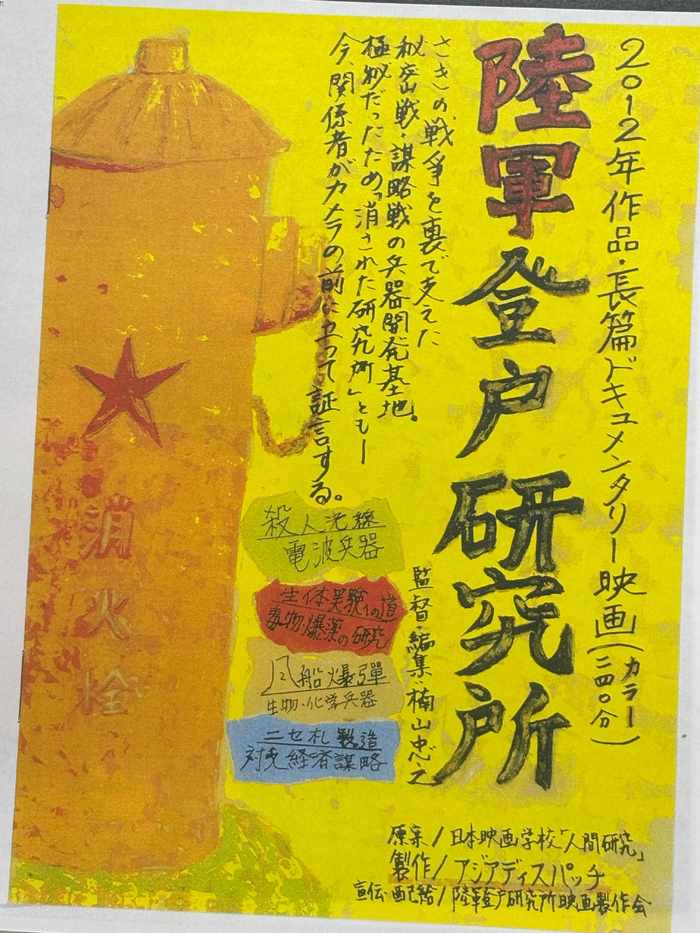 2012年作品・長篇ドキュメンタリー映画(カラー 二四〇分)
陸軍登戸研究所
監督・編集:楠山忠之
さきの戦争を裏で支えた
秘密戦・謀略戦の兵器開発基地。
極秘だったため「消された研究所」とも―
今、関係者がカメラの前に立って証言する。
殺人光線
電波兵器
生体実験への道
毒物・爆薬の研究
風船爆弾
生物・化学兵器
ニセ札製造
対支経済謀略
消火栓
原案/日本映画学校「人間研究」
製作/アジアディスパッチ
宣伝・配給/陸軍登戸研究所映画製作会